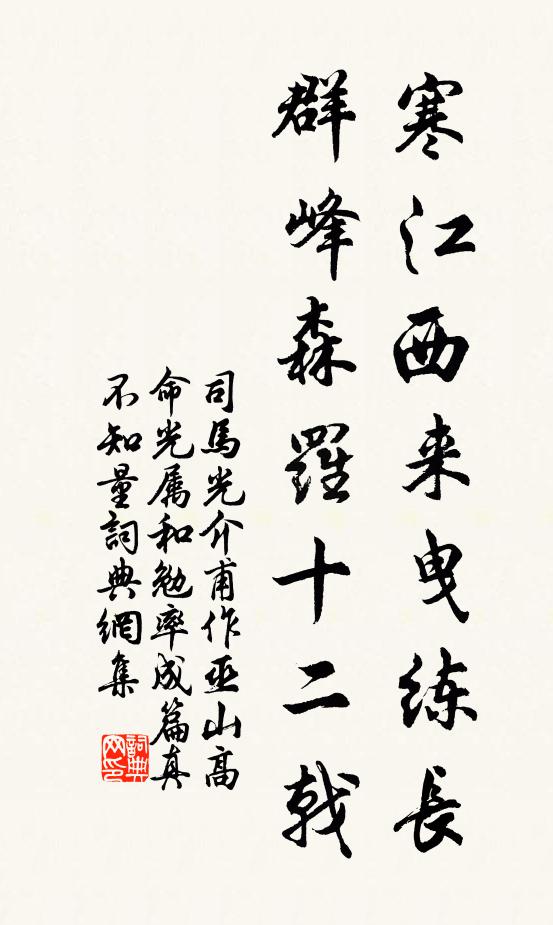 寒江西来曳练長
群峰森羅十二戟
司馬光介甫作巫山高
命光属和勉率成篇真
不知量詞典網集
詞典
网印